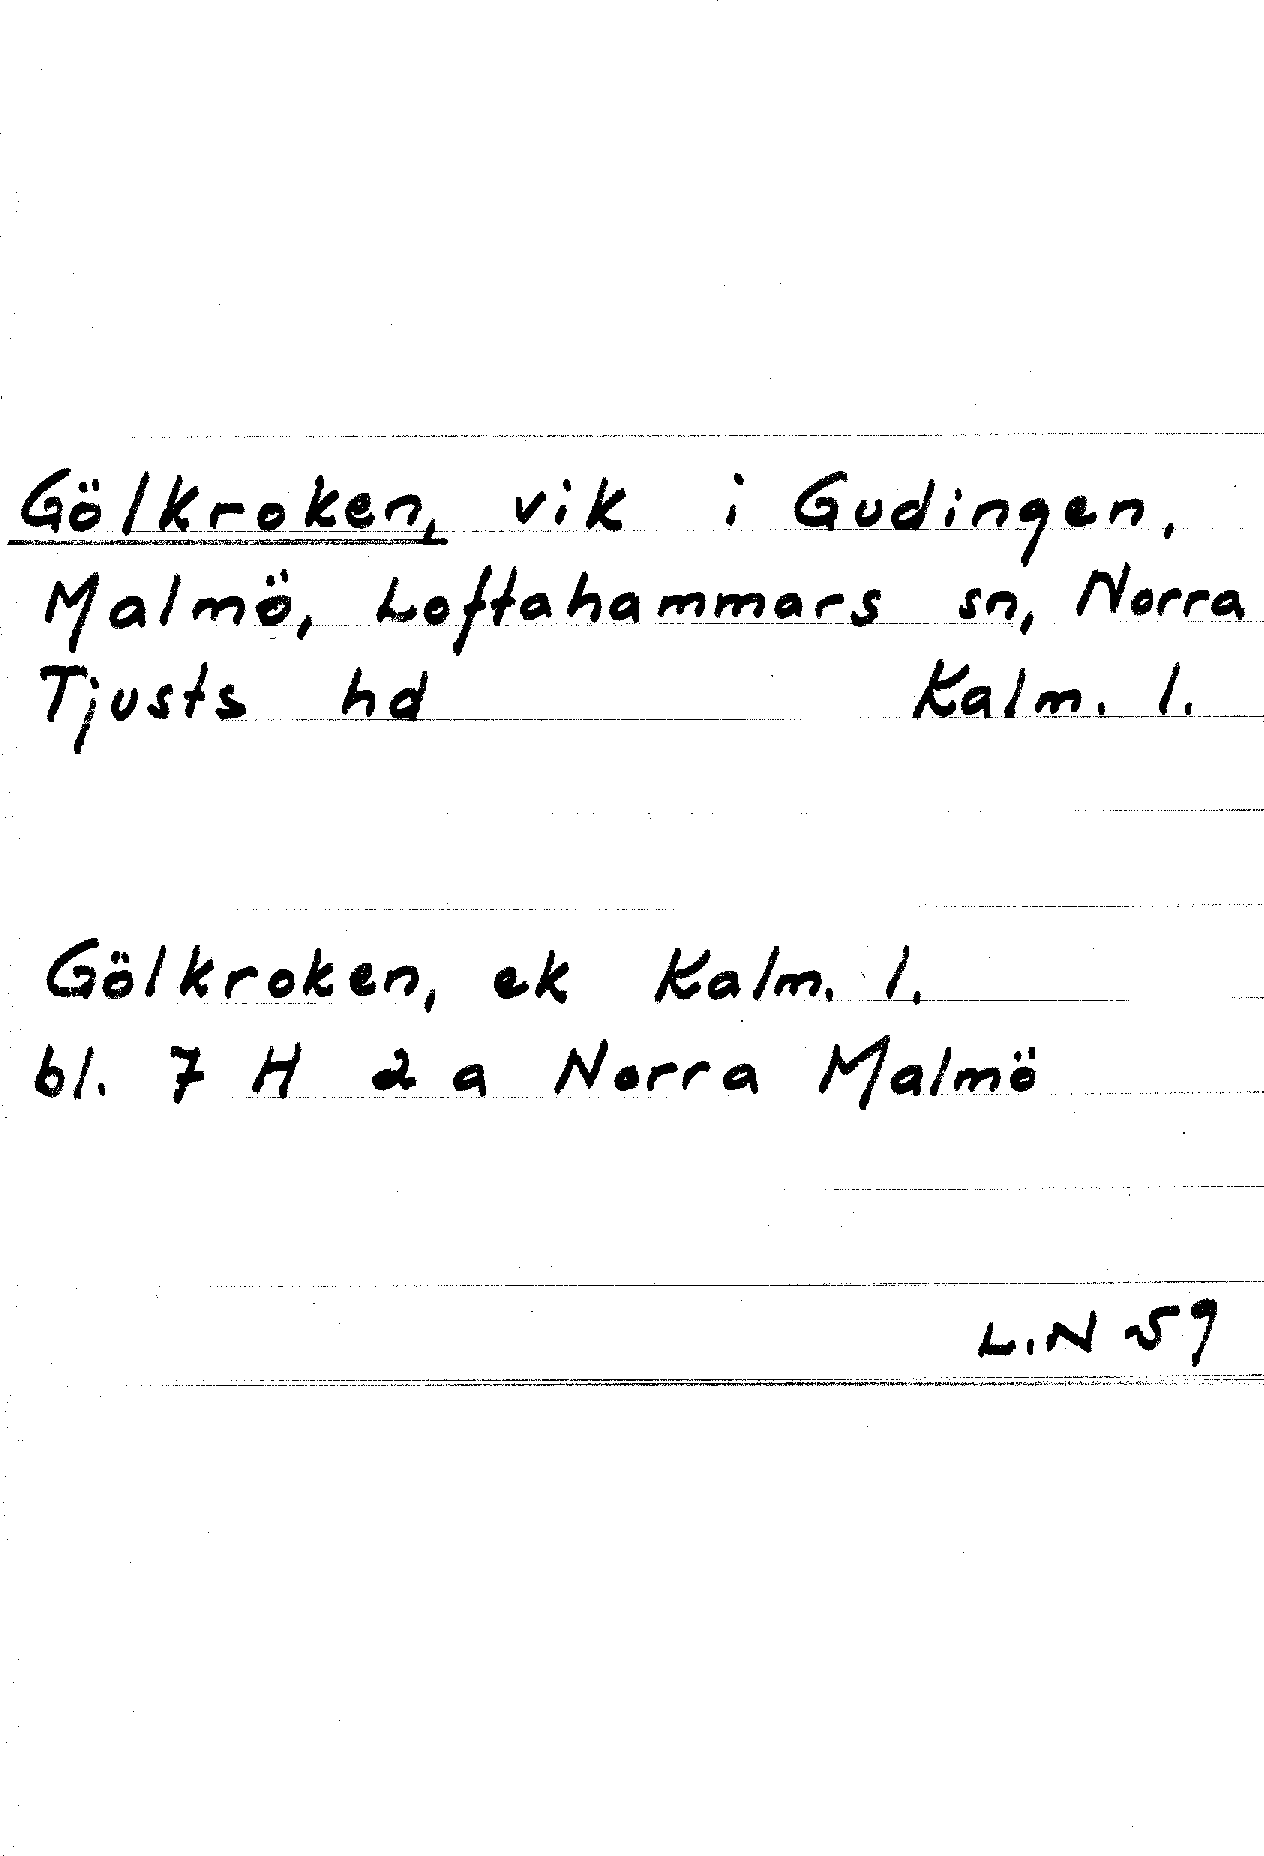 Gölkroken, vik i Gudingen,
Malmö, Loftahammars sn, Norra
Tjusts hd Kalm. l.
Gölkroken, ek Kalm. l.
bl. 7 H 2 a Norra Malmö
L.N 59